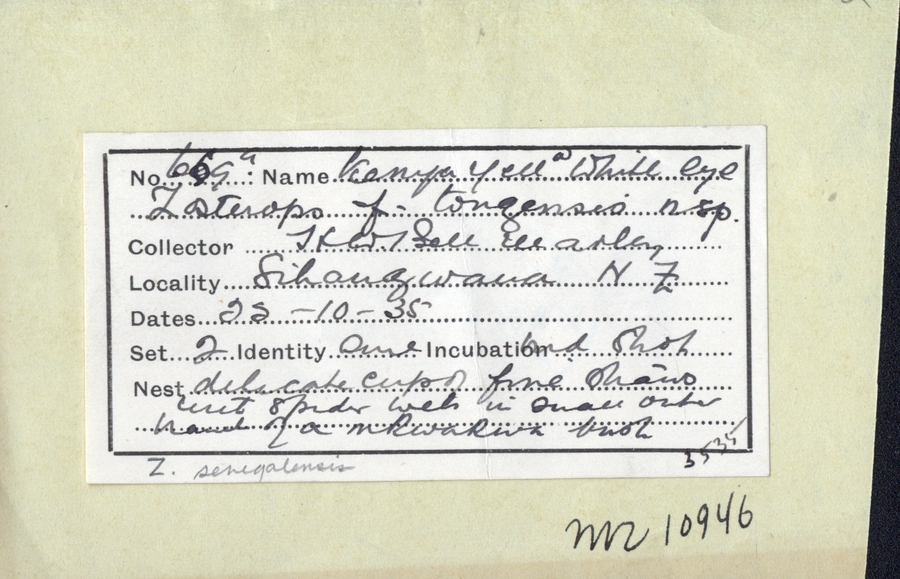 No. 669a : Name Kenya Yella White eye
Zosterops f. tongensis n sp.
Collector Bell Marley
Locality Sihangwana N Z
Dates 22 -10-35
Set 2 Identity Sure Incubation Bird Shot
Nest delicate cup of fine straws
with spider web in small outer
of a mkwakwa bush
3535
Z. senegalensis
10946